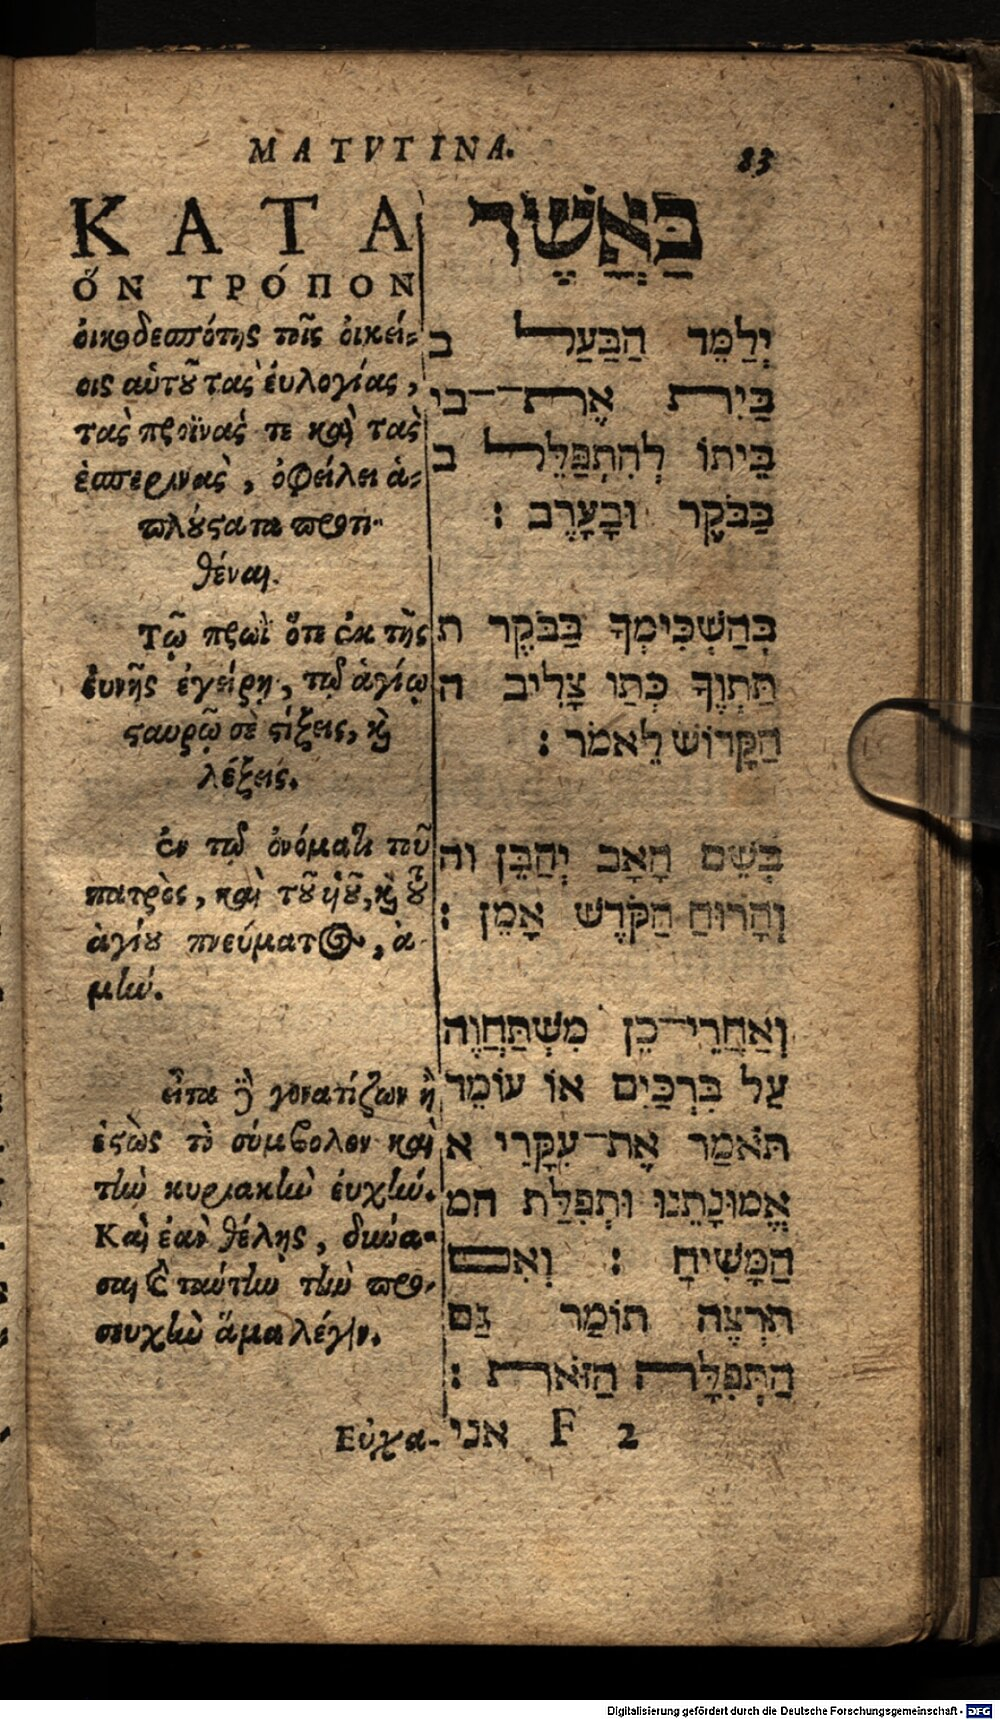 MATVTINA.
83
ΚΑΤΑ
ὅΝ ΤΡΌΠΟΝ
ὀικοδεσπότης τοῖς ὀικεί-
οις αὐτοῦ τας ἐυλογίας,
τὰς πρωϊνάς τε καὶ τὰς
ἑσπερινὰς, ὀφείλει ἁ-
πλούςατα προτι-
θέναι.
Τῷ πρωῒ ὅτε ἐκ τῆς
ἐυνῆς ἐγείρῃ, τῷ ἁγίῳ
ςαυρῷ σὲ ςίξεις, καὶ
λέξεις.
ἐν τῷ ὀνόματι τοῦ
πατρὸς, καὶ τοῦ ὑιοῦ, καὶ τοῦ
ἁγίου πνεύματος, ἀ-
μήν.
εἶτα γονατίζων ἢ
ἑςὼς τὸ σύμβολον καὶ
τὴν κυριακὴν ἐυχήν.
Καὶ ἐὰν θέλῃς, δυνα-
σαι καὶ ταύτην τὴν προ-
σευχὴν ἅμα λέγειν.
Εὐχα-
כַּאֲשֶׁר
יְלַמֵּד הַבַּעַל ב
בַּיִת אֶת־־בי
בֵּיתוֹ לְהִתְפַּלֵּל ב
בַּבֹּקֶר וּבָעֶרֶב :
בְּהַשְׁכִּימְךָ בַּבֹּקֶר ת
תִּתְוֶךָ כְּתַו צָלִיב ה
הַקָּדוֹשׁ לֵאמֹר :
בְּשֵׁם הָאָב יְהַבֵּן וה
וְהָרוּחַ הַקֹּדֶשׁ אָמֵן :
וְאַחֲרֵי־כֵן מִשְׁתַּחֲוֶה
עַל בִּרְכַּיִם אוֹ עוֹמֵד
תֹּאמַר אֶת־עִקָּרֵי א
אֱמוּנָתֵנוּ וּתְפִלַּת המ
הַמָּשִׁיחַ : וְאִם
תִּרְצֶה תוֹמַר גַּם
הַתְּפִלָּה הַזּאֹת :
אני
F 2
Digitalisierung gefördert durch die Deutsche Forschungsgemeinschaft - DFG